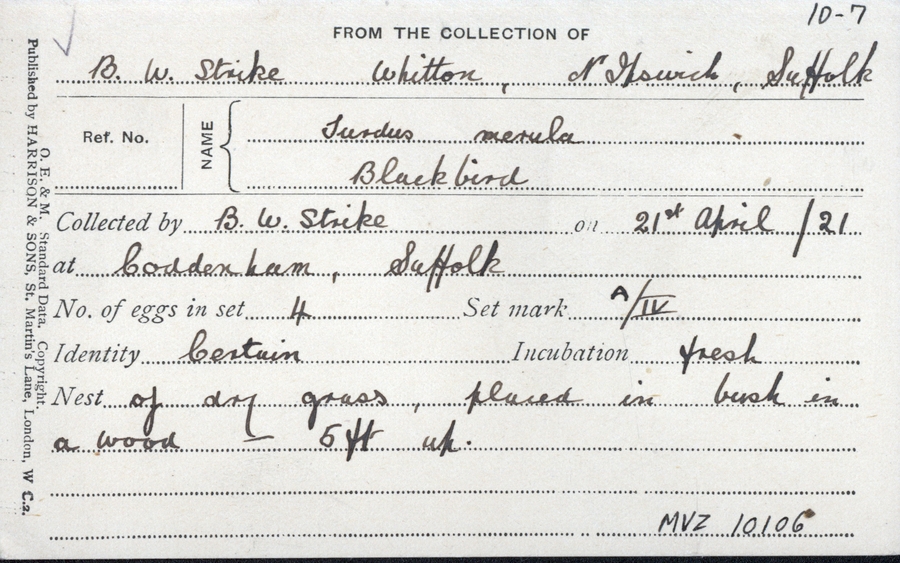 10-7
FROM THE COLLECTION OF
B. W. Strike Whitton, Nr Ipswich, Suffolk
Ref. No.
NAME
Turdus merula
Blackbird
Collected by B. W. Strike on 21st April /21
at Coddenham, Suffolk
No. of eggs in set 4 Set mark A/IV
Identity Certain Incubation fresh
Nest of dry grass, placed in bush in
a wood — 5 ft up.
MVZ 10106
O. E. & M. Standard Data, Copyright
Published by HARRISON & SONS, St. Martin's Lane, London, W C.2.